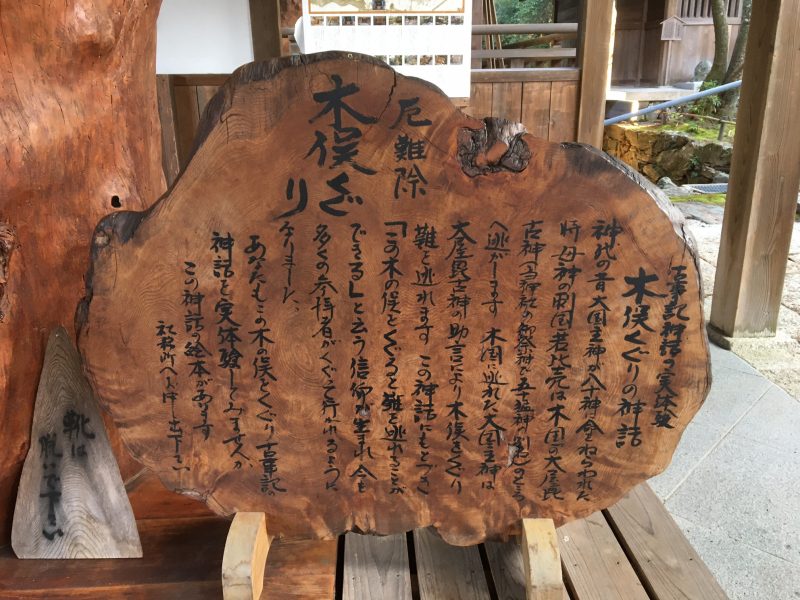 厄難除
木俣くぐり
古事記神話の実体験
木俣くぐりの神話
神代の昔大国主神が八十神に命をねらわれた
時母神の刺国若比売は木国の大屋毘
古神(当神社の御祭神で五十猛神の別名)のところ
へ逃がします 木国に逃れた大国主神は
大屋毘古神の助言により木俣をくぐり
難を逃れます この神話にもとづき
「この木の俣をくぐると難を逃れることが
できる」と云う信仰が生まれ 今も
多くの参拝者がくぐって行かれるように
なりました。
あなたもこの木の俣をくぐり 古事記の
神話を実体験してみませんか
この神話の絵本があります
社務所へお申し出下さい
靴は
脱いで下さい